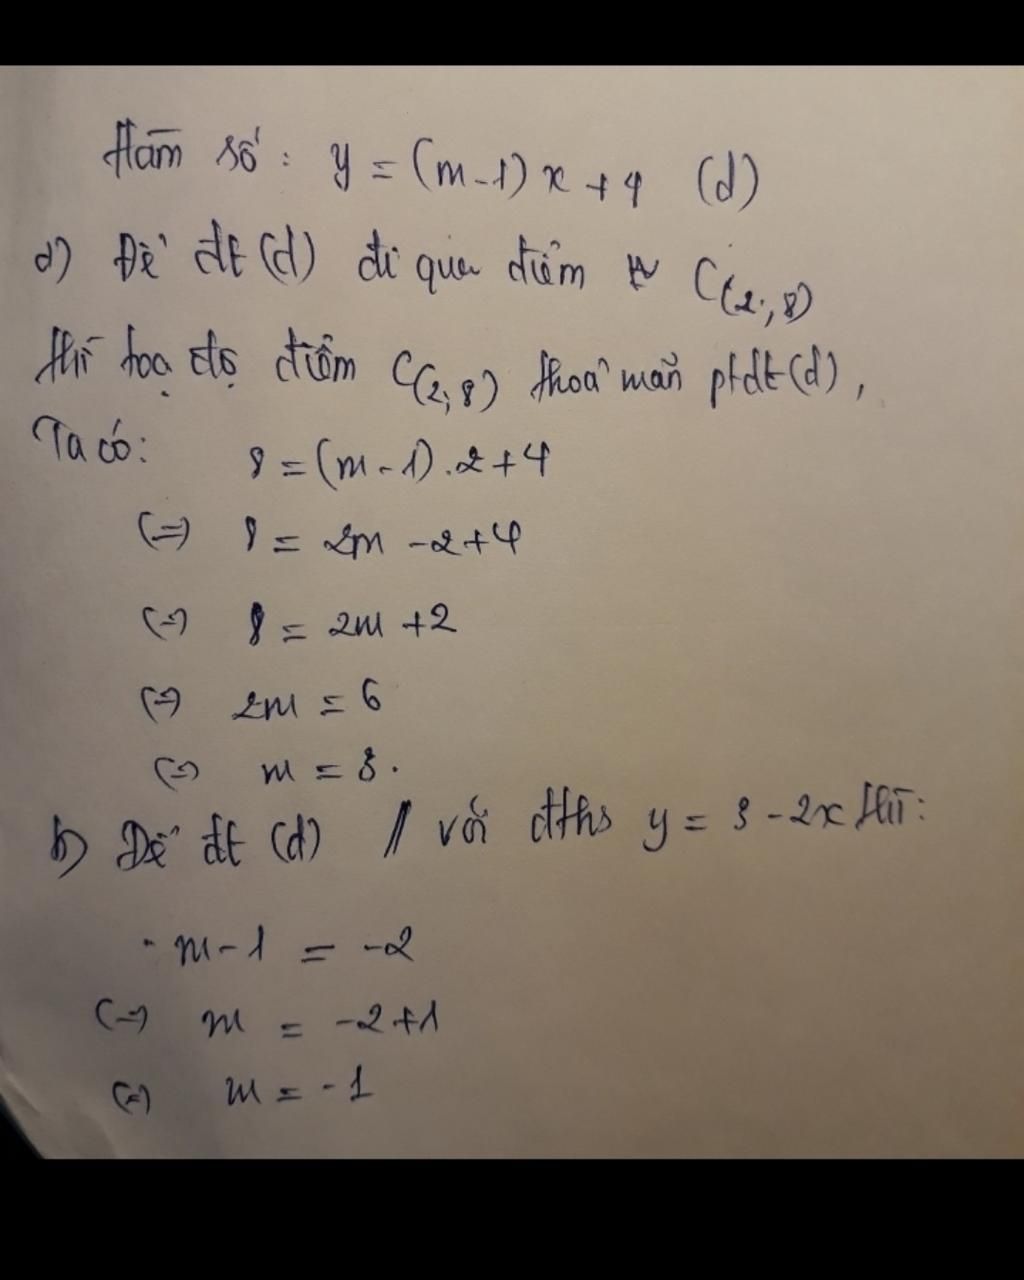 Hàm số: y = (m-1) x + 4 (d)
a) Để đt (d) đi qua điểm C(2; 8)
thì toạ độ điểm C(2; 8) thoả mãn ptđt (d),
Ta có: 8 = (m - 1) . 2 + 4
(=) 8 = 2m - 2 + 4
(=) 8 = 2m + 2
(=) 2m = 6
(=) m = 3.
b) Để đt (d) // với đths y = 3 - 2x thì:
- m - 1 = -2
(=) m = -2 + 1
(=) m = -1